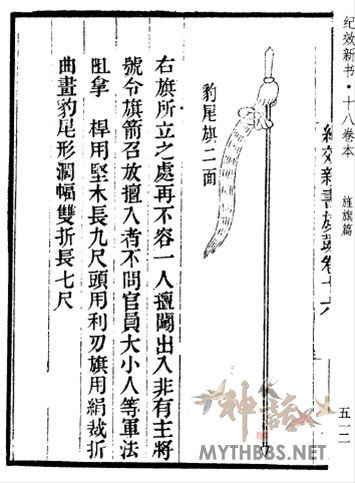 纪效新书·十八卷本 旌旗篇 五一二
紀效新書旌旗卷十六
豹尾旗二面
右旗所立之處再不容一人擅闖出入非有主將
號令旗箭召放擅入者不問官員大小人等軍法
阻拿 桿用堅木長九尺頭用利刃旗用絹裁折
曲畫豹尾形濶幅雙折長七尺
神話
MYTHBBS.NET